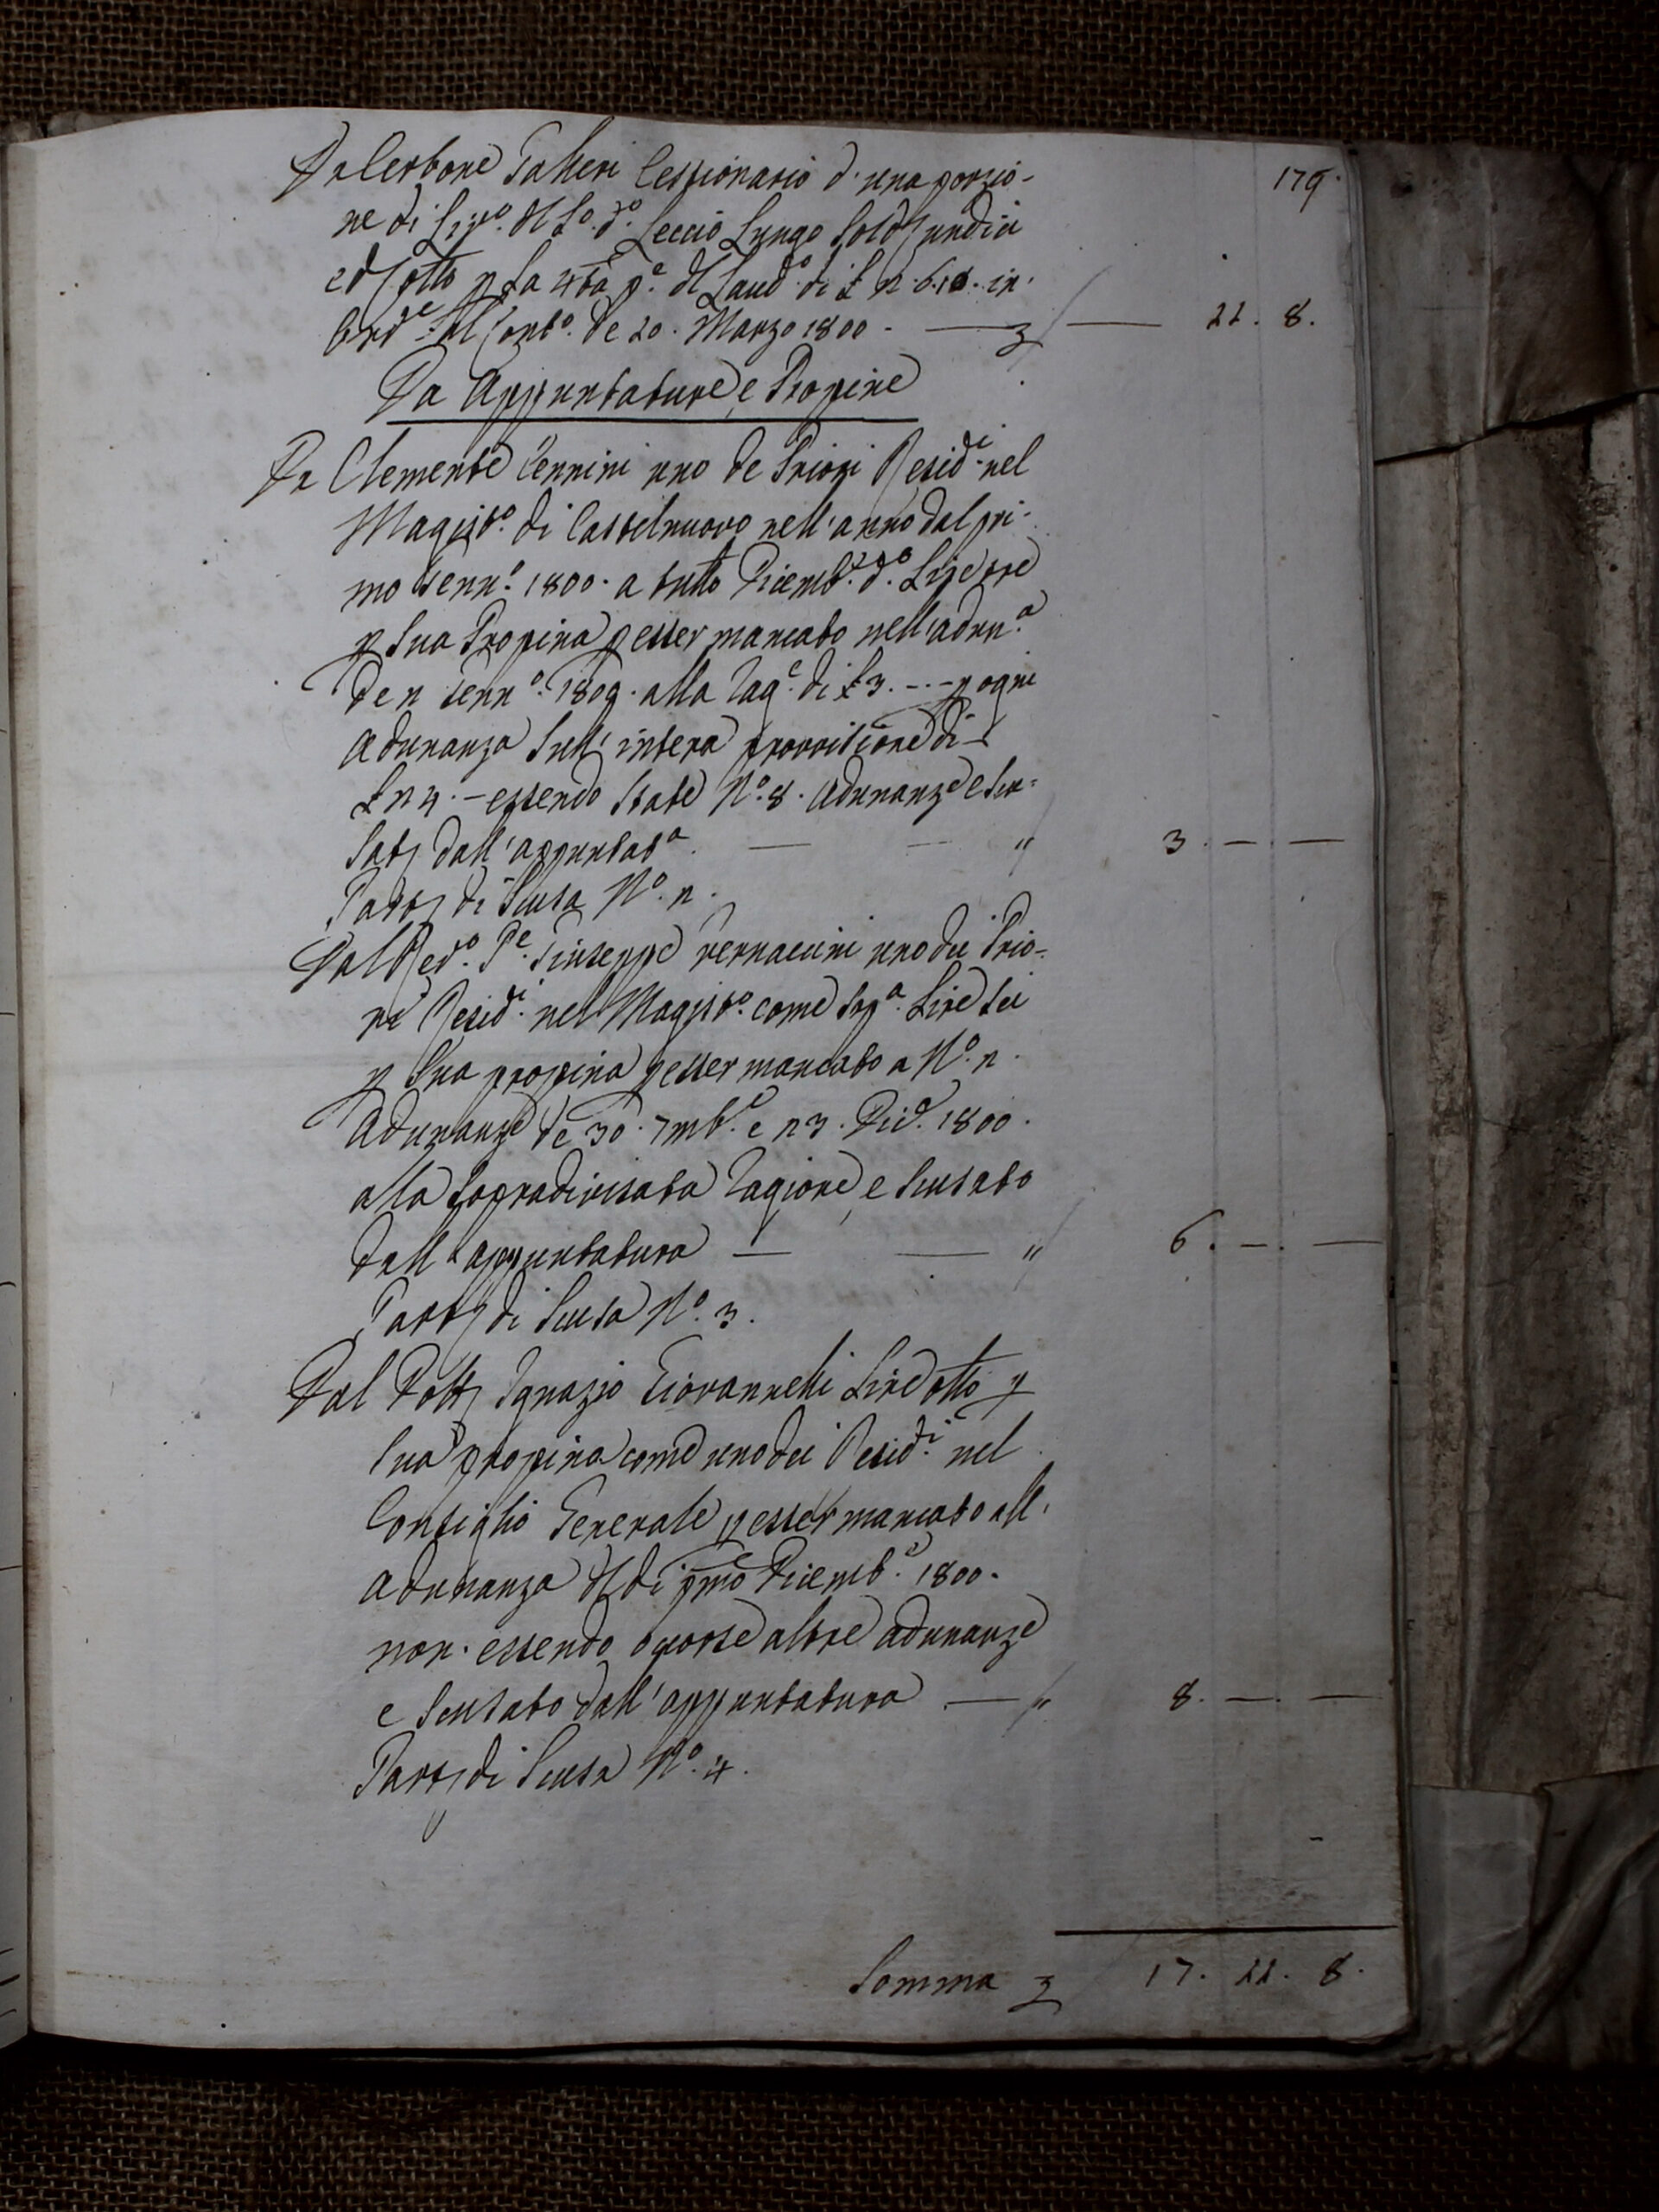 179.
Da Cerbone Talleri Cessionario d'una porzio-
ne di Liv.º del P.º d.º Leccio Lungo Soldi undici
e d otto p la 4ta p.e del Laud.º di £ 2. 6. 10. in
Ord.e al Cont.º de 20. Marzo 1800. — £ — 11. 8.
Da Appuntature, e Propine
Da Clemente Cennini uno de Priori Resid.i nel
Magist.º di Castelnuovo nell'anno dal pri-
mo Genn.º 1800. a tutto Dicemb.e d.º Lire tre
p Sua Propina p esser mancato nell'adun.a
de 2 Genn.º 1800. alla rag.e di £ 3. -.- p ogni
Adunanza Sull'intera provvisione di
£ 24. - essendo State N.º 8. Adunanze e Scu-
sato dall'appuntat.a — — " 3. — . —
Part di Scusa N.º 2.
Dal Red.º P.e Giuseppe Vernaccini uno dei Prio-
ri Resid.i nel Magist.º come Sop.a Lire Sei
p Sua propina p esser mancato a N.º 2.
Adunanze de 30. 7mb.e e 23. Dic.e 1800.
alla Sopradivisata ragione, e Scusato
dall'appuntatura — — " 6. — . —
Part di Scusa N.º 3.
Dal Dott Ignazio Giovannelli Lire otto p
Sua propina come uno dei Resid.i nel
Consiglio Generale p esser mancato all'
Adunanza del di pmo Dicemb.e 1800.
non essendo occorse altre adunanze
e Scusato dall'appuntatura — " 8. — . —
Part di Scusa N.º 4.
Somma £ 17. 11. 8.